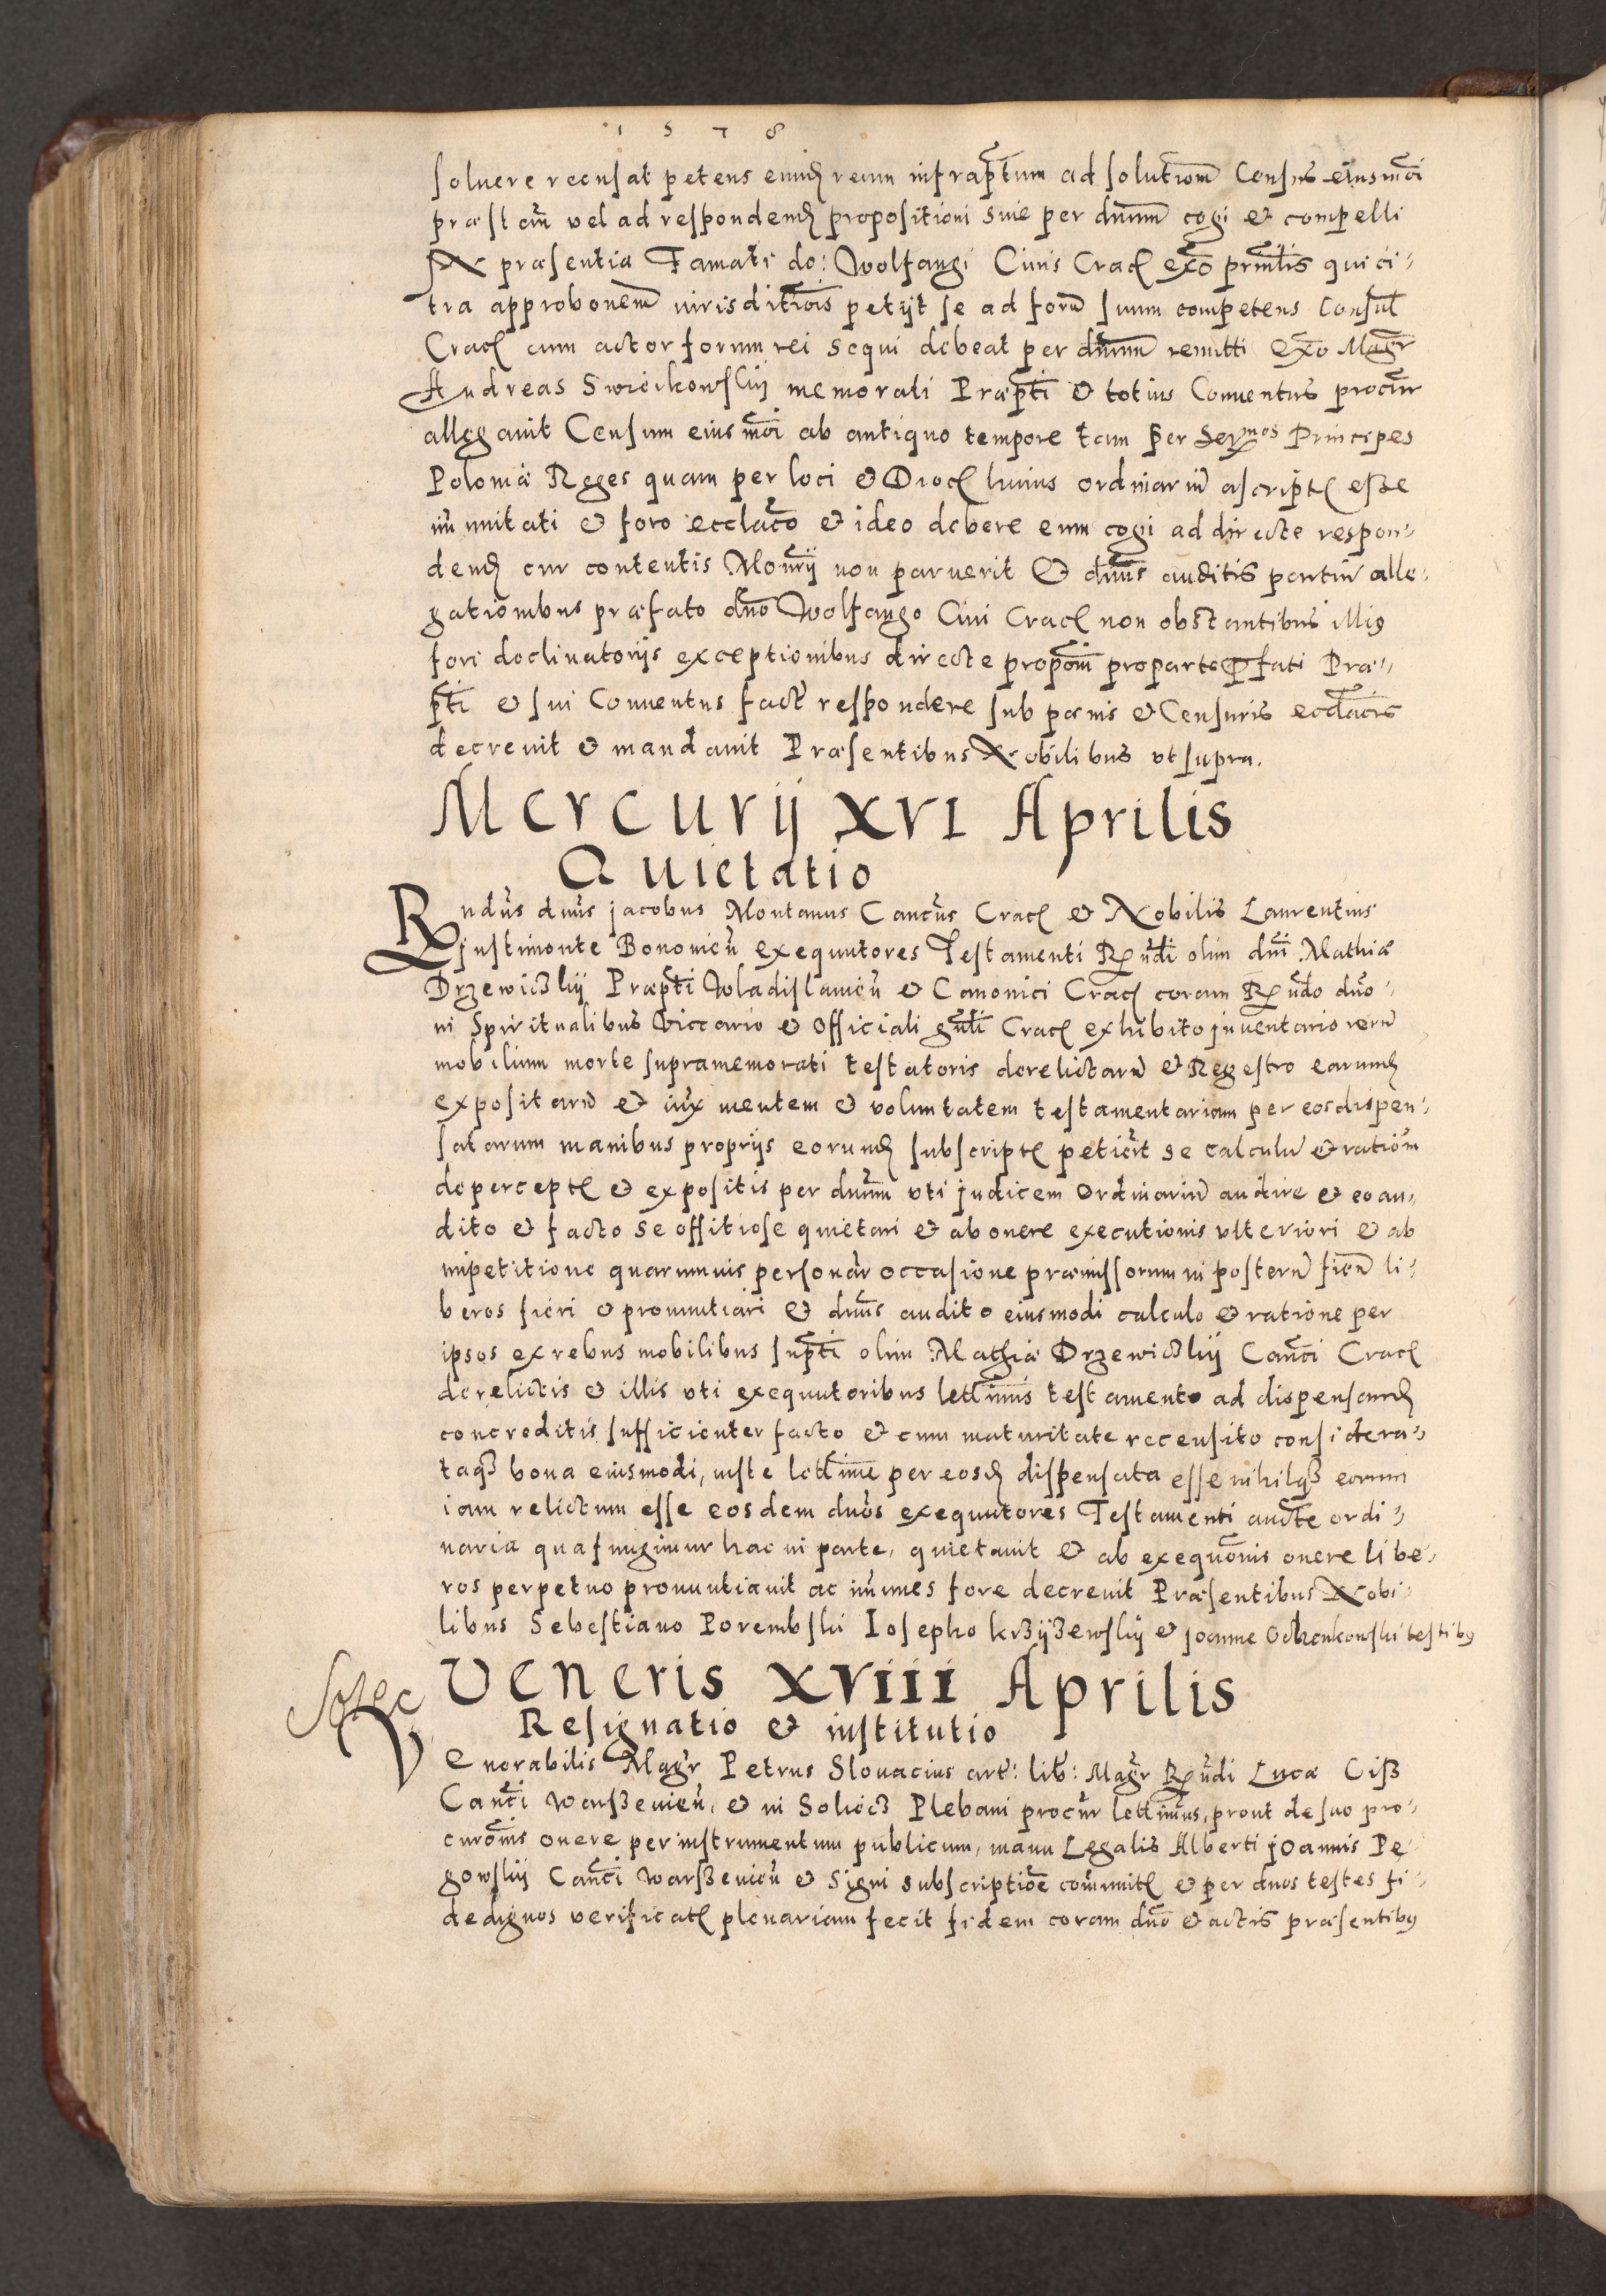 1578
soluere recusat petens eundē reum infrapt̄um ad solutionē Censūs eiusmōi
præstan̄ vel ad respondendē propositioni suæ per dnum̄ cogi et compelli
In præsentia Famati do: Wolfangi Ciuis Crac̄ exō prin̄lis qui ci-
tra approbonem̄ iurisdictiōis petijt se ad forū suum competens Consul̄
Crac̄ cum actor forum rei sequi debeat per dnum̄ remitti Exō Magr̄
Andreas Swiecikowskij memorati Præpt̄i et totius Conuentus procur̄
allegauit Censum eiusmōi ab antiquo tempore tam per Serᵐᵒˢ Principes
Poloniæ Reges quam per loci et Dioc̄ huius ordinariū ascript̄ esse
im̄unitati et foro ecclāco et ideo debere eum cogi ad directe respon-
dendē cur contentis Monr̄ij non paruerit Et dnūs auditis partiū alle-
gationibus præfato dnō Wolfango Ciui Crac̄ non obstantibus illius
fori declinatorijs exceptionibus directe propon̄i pro parte p̄fati Præ-
pt̄i et sui Conuentus fact̄ respondere sub pœnis et Censuris ecclācis
decreuit et mandauit Præsentibus Nobilibus vt supra.
Mercurij XVI Aprilis
Quietatio
Rndūs dnūs jacobus Montanus Canc̄us Crac̄ et Nobilis Laurentius
Justimonte Bononicū exequutores Testamenti Rundī olim dnī Mathiæ
Drzewiczkij Præpt̄i Wladislauieū et Canonici Crac̄ coram Rundō dnō
in Spiritualibus Viccario et Officiali gnl̄i Crac̄ exhibito jnuentario rerū
mobilium morte supramemorati testatoris derelictarū et Regestro earundē
expositarū et iux̄ mentem et voluntatem testamentariam per eos dispen-
satarum manibus proprijs eorundē subscript̄ petier̄t se calculū et ration̄
de percept̄ et expositis per dnum̄ vti judicem Ordinariū audire et eo au-
dito et facto se offitiose quietari et ab onere executionis vlteriori et ab
impetitione quarumuis personar̄ occasione præmissorum in posterū fiend̄ li-
beros fieri et pronuntiari Et dnūs audito eiusmodi calculo et ratione per
ipsos ex rebus mobilibus supt̄i olim Mathiæ Drzewiczkij Canc̄i Crac̄
derelictis et illis vti exequutoribus lettimis testamento ad dispensandē
concreditis sufficienter facto et cum maturitate recensito considera-
taq3 bona eiusmodi, iuste lettime per eosdē dispensata esse nihilq3 eorum
iam relictum esse eosdem dnōs exequutores Testamenti auct̄e ordi-
naria qua fungimur hac in parte, quietauit et ab exequōnis onere libe-
ros perpetuo pronuntiauit ac im̄unes fore decreuit Præsentibus Nobi-
libus Sebestiano Porembski Iosepho krzijzewskij et joanne Ochenkowski testibus
Solec
Veneris XVIII Aprilis
Resignatio et institutio
Venerabilis Magr̄ Petrus Slouacius art: lib: Magr̄ Rundī Lucæ Cisz
Canc̄i Warszeuien̄, et in Soliecz Plebani procur̄ lettimus, prout de suo pro-
curōnis onere per instrumentum publicum, manu Legalis Alberti jOannis Pe-
gowskij Canc̄i Warszeuien̄ et Signi subscriptiōe com̄unit̄ et per duos testes fi-
dedignos verificat̄ plenariam fecit fidem coram dnō et actis præsentibus